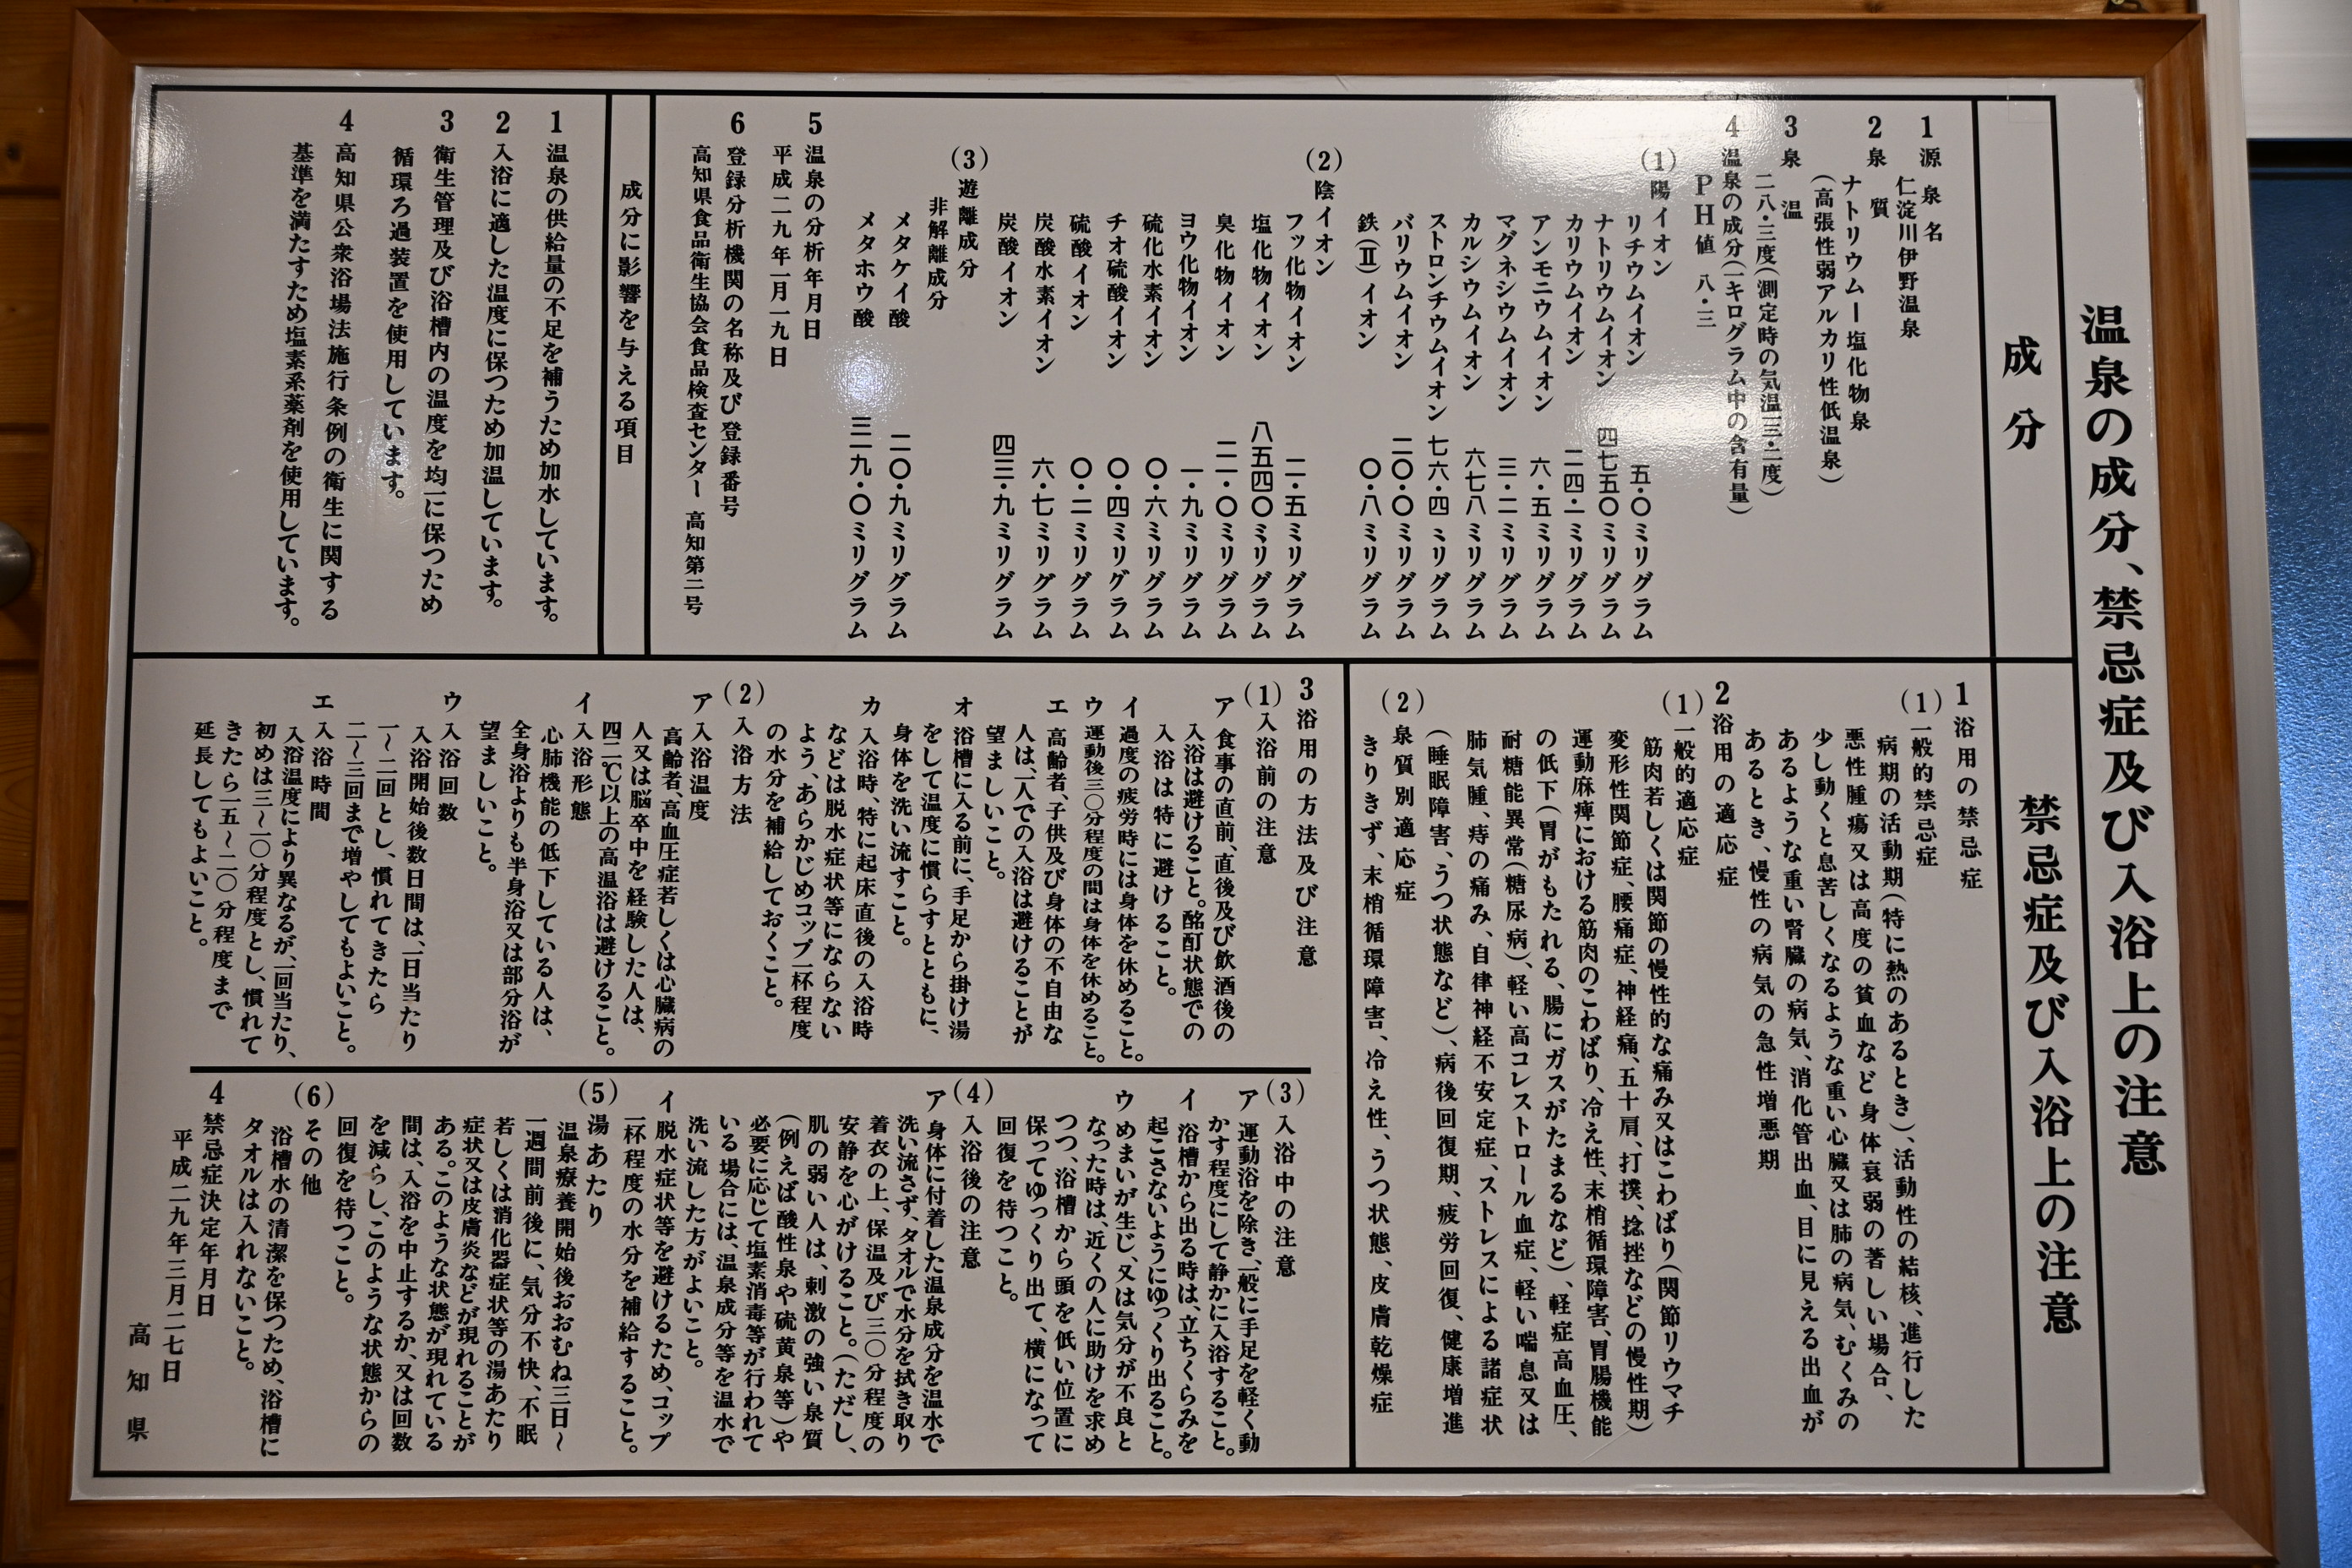 温泉の成分、禁忌症及び入浴上の注意
成分
1 源泉名
仁淀川伊野温泉
2 泉質
ナトリウム―塩化物泉
(高張性弱アルカリ性低温泉)
3 泉温
二八・三度(測定時の気温一三・二度)
4 温泉の成分(一キログラム中の含有量)
PH値 八・三
(1) 陽イオン
リチウムイオン 五・〇ミリグラム
ナトリウムイオン 四七五〇ミリグラム
カリウムイオン 二四・一ミリグラム
アンモニウムイオン 六・五ミリグラム
マグネシウムイオン 三・二ミリグラム
カルシウムイオン 六七八ミリグラム
ストロンチウムイオン 七六・四ミリグラム
バリウムイオン 二〇・〇ミリグラム
鉄(Ⅱ)イオン 〇・八ミリグラム
(2) 陰イオン
フッ化物イオン 一・五ミリグラム
塩化物イオン 八五四〇ミリグラム
臭化物イオン 二一・〇ミリグラム
ヨウ化物イオン 一・九ミリグラム
硫化水素イオン 〇・六ミリグラム
チオ硫酸イオン 〇・四ミリグラム
硫酸イオン 〇・二ミリグラム
炭酸水素イオン 六・七ミリグラム
炭酸イオン 四三・九ミリグラム
(3) 遊離成分
非解離成分
メタケイ酸 二〇・九ミリグラム
メタホウ酸 三一九・〇ミリグラム
5 温泉の分析年月日
平成二九年一月一九日
6 登録分析機関の名称及び登録番号
高知県食品衛生協会食品検査センター 高知第二号
成分に影響を与える項目
1 温泉の供給量の不足を補うため加水しています。
2 入浴に適した温度に保つため加温しています。
3 衛生管理及び浴槽内の温度を均一に保つため
循環ろ過装置を使用しています。
4 高知県公衆浴場法施行条例の衛生に関する
基準を満たすため塩素系薬剤を使用しています。
禁忌症及び入浴上の注意
1 浴用の禁忌症
(1) 一般的禁忌症
病期の活動期(特に熱のあるとき)、活動性の結核、進行した
悪性腫瘍又は高度の貧血など身体衰弱の著しい場合、
少し動くと息苦しくなるような重い心臓又は肺の病気、むくみの
あるような重い腎臓の病気、消化管出血、目に見える出血が
あるとき、慢性の病気の急性増悪期
2 浴用の適応症
(1) 一般的適応症
筋肉若しくは関節の慢性的な痛み又はこわばり(関節リウマチ
変形性関節症、腰痛症、神経痛、五十肩、打撲、捻挫などの慢性期)
運動麻痺における筋肉のこわばり、冷え性、末梢循環障害、胃腸機能
の低下(胃がもたれる、腸にガスがたまるなど)、軽症高血圧、
耐糖能異常(糖尿病)、軽い高コレストロール血症、軽い喘息又は
肺気腫、痔の痛み、自律神経不安定症、ストレスによる諸症状
(睡眠障害、うつ状態など)、病後回復期、疲労回復、健康増進
(2) 泉質別適応症
きりきず、末梢循環障害、冷え性、うつ状態、皮膚乾燥症
3 浴用の方法及び注意
(1) 入浴前の注意
ア 食事の直前、直後及び飲酒後の
入浴は避けること。酩酊状態での
入浴は特に避けること。
イ 過度の疲労時には身体を休めること。
ウ 運動後三〇分程度の間は身体を休めること。
エ 高齢者、子供及び身体の不自由な
人は、一人での入浴は避けることが
望ましいこと。
オ 浴槽に入る前に、手足から掛け湯
をして温度に慣らすとともに、
身体を洗い流すこと。
カ 入浴時、特に起床直後の入浴時
などは脱水症状等にならない
よう、あらかじめコップ一杯程度
の水分を補給しておくこと。
(2) 入浴方法
ア 入浴温度
高齢者、高血圧症若しくは心臓病の
人又は脳卒中を経験した人は、
四二℃以上の高温浴は避けること。
イ 入浴形態
心肺機能の低下している人は、
全身浴よりも半身浴又は部分浴が
望ましいこと。
ウ 入浴回数
入浴開始後数日間は、一日当たり
一～二回とし、慣れてきたら
二～三回まで増やしてもよいこと。
エ 入浴時間
入浴温度により異なるが、一回当たり、
初めは三～一〇分程度とし、慣れて
きたら一五～二〇分程度まで
延長してもよいこと。
(3) 入浴中の注意
ア 運動浴を除き、一般に手足を軽く動
かす程度にして静かに入浴すること。
イ 浴槽から出る時は、立ちくらみを
起こさないようにゆっくり出ること。
ウ めまいが生じ、又は気分が不良と
なった時は、近くの人に助けを求め
つつ、浴槽から頭を低い位置に
保ってゆっくり出て、横になって
回復を待つこと。
(4) 入浴後の注意
ア 身体に付着した温泉成分を温水で
洗い流さず、タオルで水分を拭き取り
着衣の上、保温及び三〇分程度の
安静を心がけること。(ただし、
肌の弱い人は、刺激の強い泉質
(例えば酸性泉や硫黄泉等)や
必要に応じて塩素消毒等が行われて
いる場合には、温泉成分等を温水で
洗い流した方がよいこと。
イ 脱水症状等を避けるため、コップ
一杯程度の水分を補給すること。
(5) 湯あたり
温泉療養開始後おおむね三日～
一週間前後に、気分不快、不眠
若しくは消化器症状等の湯あたり
症状又は皮膚炎などが現れることが
ある。このような状態が現れている
間は、入浴を中止するか、又は回数
を減らし、このような状態からの
回復を待つこと。
(6) その他
浴槽水の清潔を保つため、浴槽に
タオルは入れないこと。
4 禁忌症決定年月日
平成二九年三月二七日
高知県